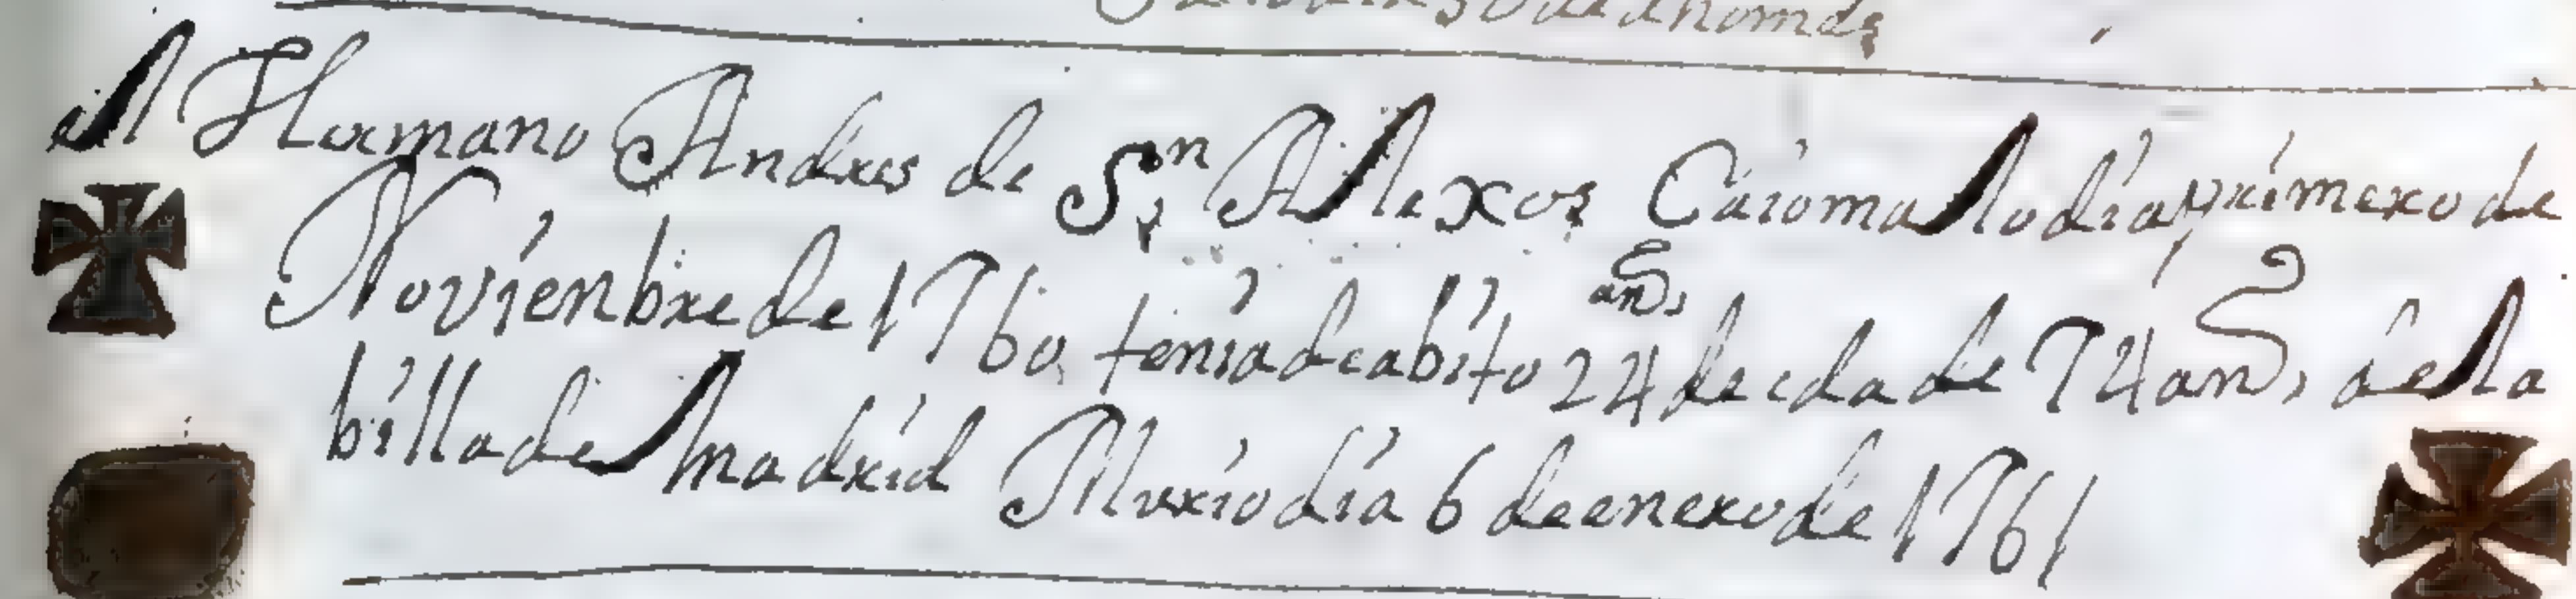 el Hermano Andres de Sn Allexos Caio malo dia primero de
Novienbre de 1760, tenia de abito 24 ans, de eda de 74 ans, de la
billa de Madrid Murio dia 6 de enero de 1761